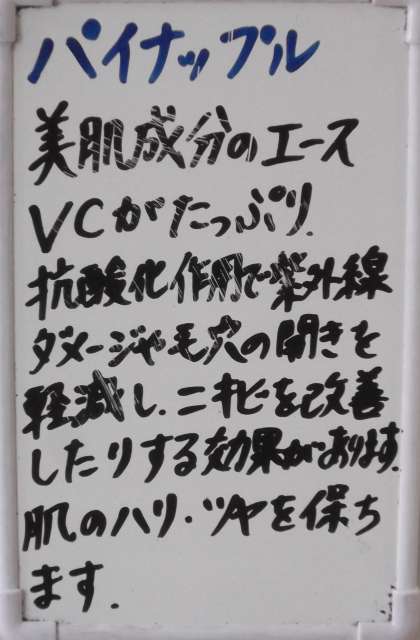 パイナップル
美肌成分のエース
VCがたっぷり.
抗酸化作用で紫外線
ダメージや毛穴の開きを
軽減し.ニキビを改善
したりする効果があります.
肌のハリ・ツヤを保ち
ます.